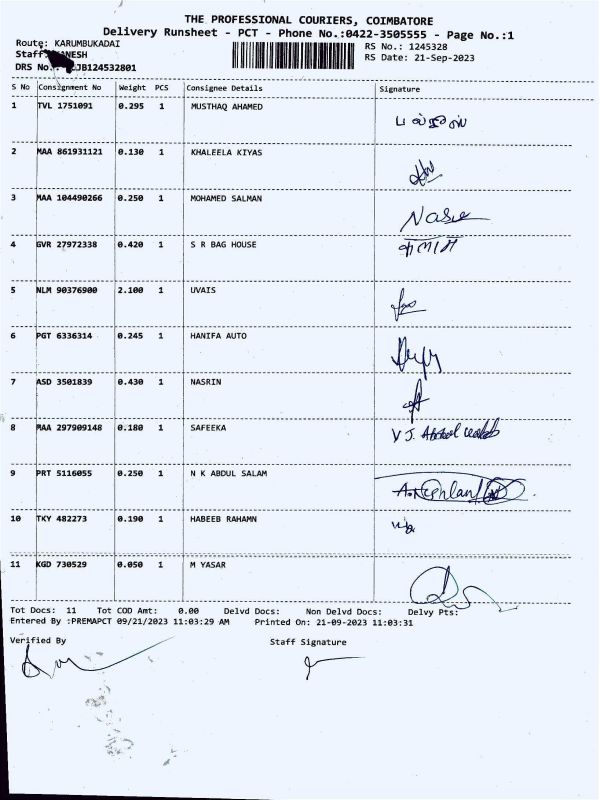 THE PROFESSIONAL COURIERS, COIMBATORE
Delivery Runsheet - PCT - Phone No.:0422-3505555 - Page No.:1
Route: KARUMBUKADAI RS No.: 1245328
Staff: RS Date: 21-Sep-2023
DRS No. JB124532801
S No Consignment No Weight PCS Consignee Details Signature
1 TVL 1751091 0.295 1 MUSTHAQ AHAMED
2 MAA 861931121 0.130 1 KHALEELA KIYAS
3 MAA 104490266 0.250 1 MOHAMED SALMAN
4 GVR 27972338 0.420 1 S R BAG HOUSE
5 NLM 90376900 2.100 1 UVAIS
6 PGT 6336314 0.245 1 HANIFA AUTO
7 ASD 3501839 0.430 1 NASRIN
8 MAA 297909148 0.180 1 SAFEEKA V J.
9 PRT 5116055 0.250 1 N K ABDUL SALAM
10 TKY 482273 0.190 1 HABEEB RAHAMN
11 KGD 730529 0.050 1 M YASAR
Tot Docs: 11 Tot COD Amt: 0.00 Delvd Docs: Non Delvd Docs: Delvy Pts:
Entered By :PREMAPCT 09/21/2023 11:03:29 AM Printed On: 21-09-2023 11:03:31
Verified By Staff Signature